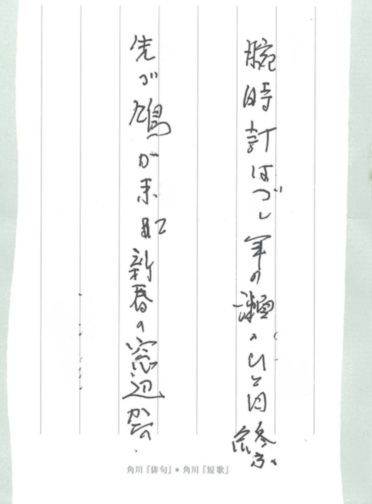 腕時計はづし年の瀬のひと日終ふ
先づ鳩が来 新春の窓辺かな
角川『俳句』★角川『短歌』